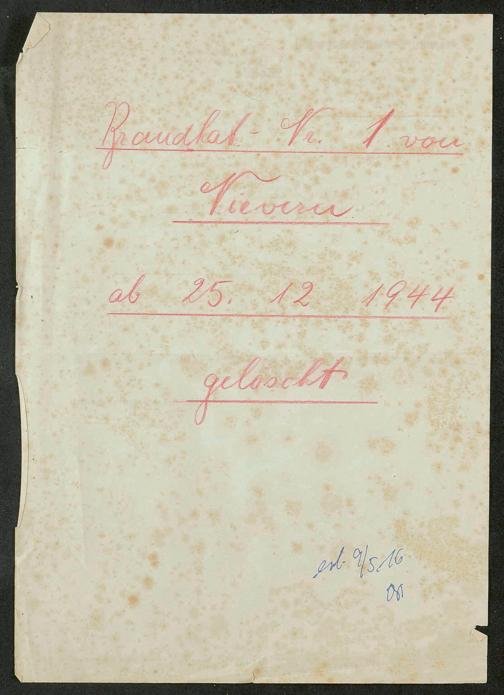 Brandkat - Nr. 1 von
Nievern
ab 25. 12 1944
geloscht
erl. 9/5.16